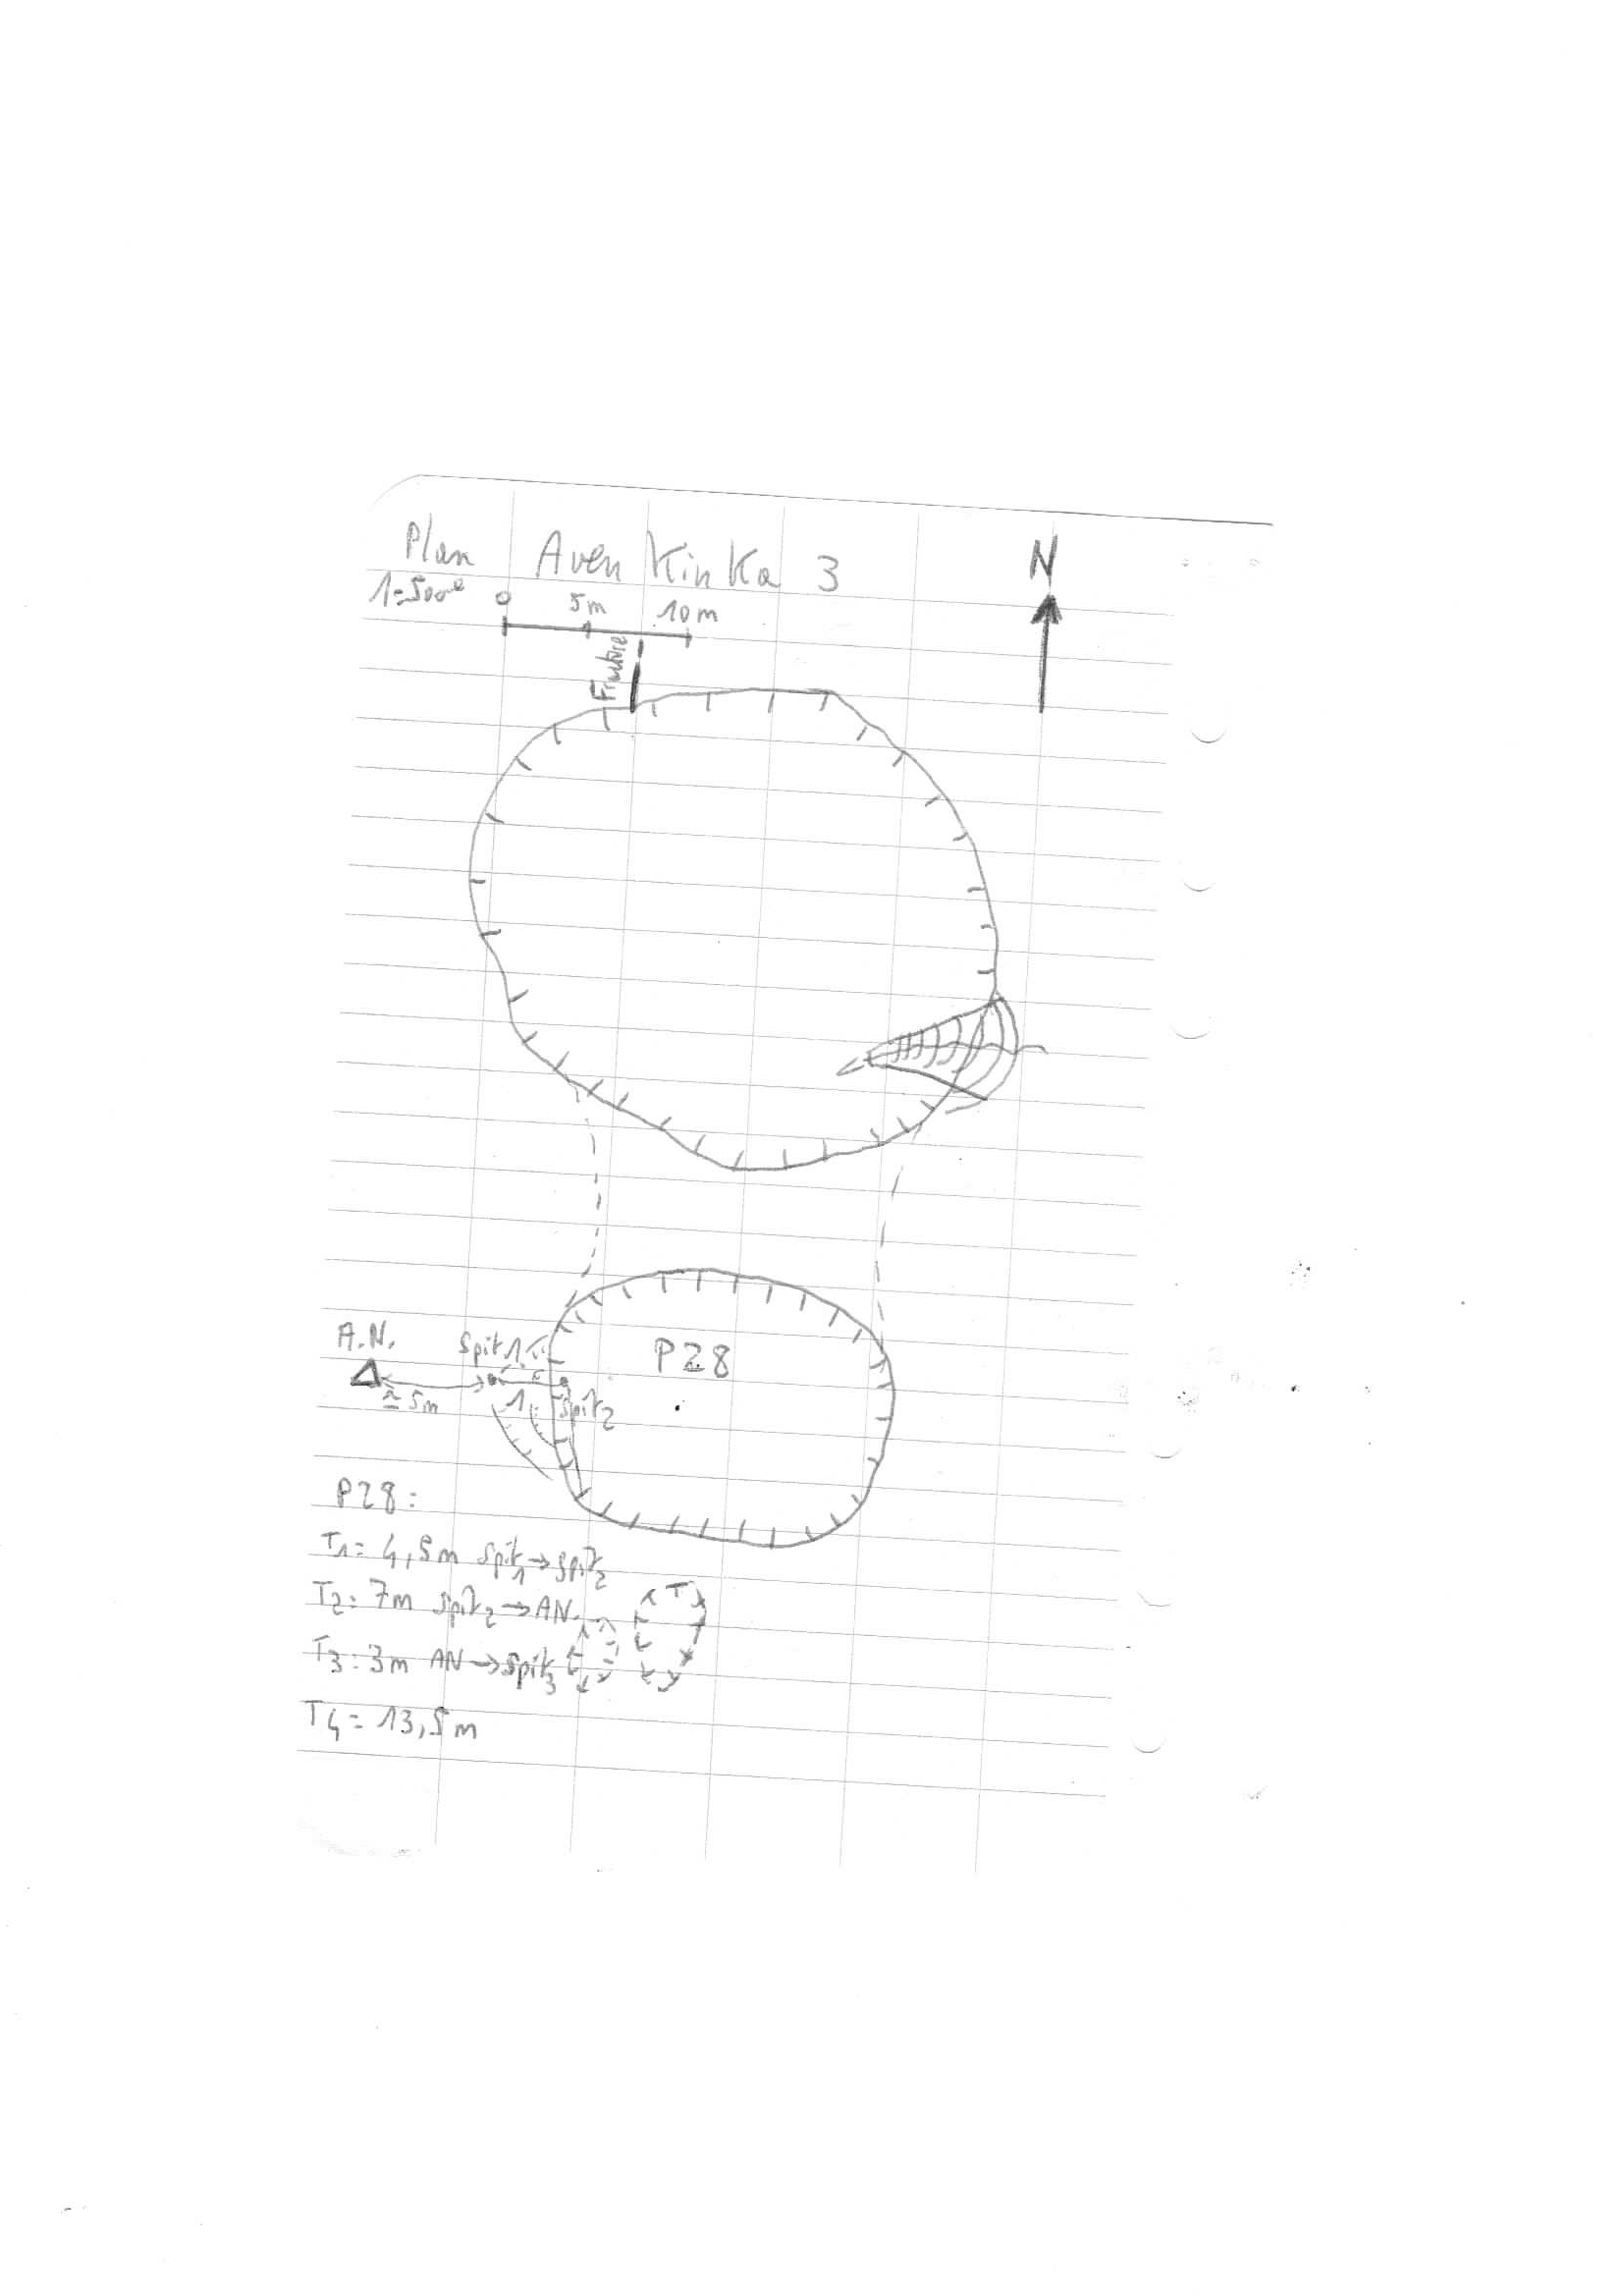 Plan Aven KinKa 3
N
1=500e 0 5m 10m
Fracture
A.N.
Spit 1
P28
≃ 5m
1
Spit2
P28:
T1= 4,5m Spit1→Spit2
T2: 7m Spit2→AN.
T3: 3m AN→Spit3
T4= 13,5m